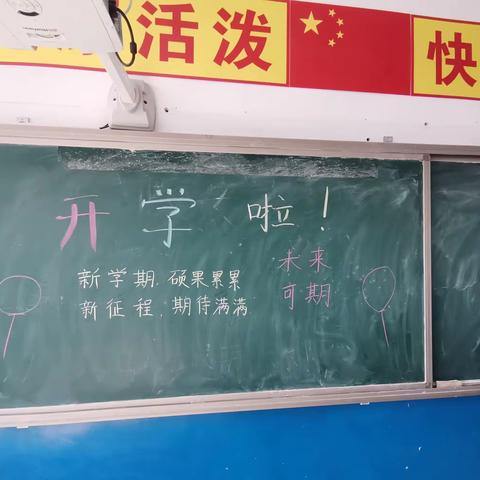 活泼
快
开学啦！
新学期，硕果累累
新征程，期待满满
未来
可期